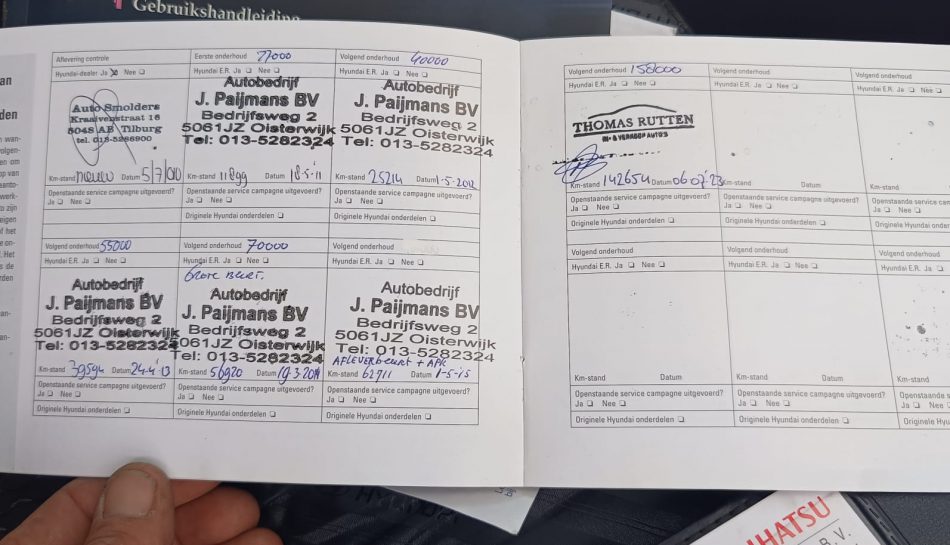 Gebruikshandleiding
Aflevering controle
Hyundai-dealer Ja Nee
Auto Smolders
Kraaivenstraat 16
5048 AB Tilburg
Km-stand nieuw Datum 5/7/010
Openstaande service campagne uitgevoerd?
Ja Nee
Eerste onderhoud
Hyundai E.R. Ja Nee
Autobedrijf
J. Paijmans BV
Bedrijfsweg 2
5061JZ Oisterwijk
Tel: 013-5282324
Km-stand 11899 Datum 18-5-11
Openstaande service campagne uitgevoerd?
Ja Nee
Originele Hyundai onderdelen
Volgend onderhoud 40000
Hyundai E.R. Ja Nee
Autobedrijf
J. Paijmans BV
Bedrijfsweg 2
5061JZ Oisterwijk
Tel: 013-5282324
Km-stand 25214 Datum 1-5-2012
Openstaande service campagne uitgevoerd?
Ja Nee
Originele Hyundai onderdelen
Volgend onderhoud 55000
Hyundai E.R. Ja Nee
Autobedrijf
J. Paijmans BV
Bedrijfsweg 2
5061JZ Oisterwijk
Tel: 013-5282324
Km-stand 39594 Datum 24-4-13
Openstaande service campagne uitgevoerd?
Ja Nee
Originele Hyundai onderdelen
Volgend onderhoud 70000
Hyundai E.R. Ja Nee
Grote Beurt.
Autobedrijf
J. Paijmans BV
Bedrijfsweg 2
5061JZ Oisterwijk
Tel: 013-5282324
Km-stand 56920 Datum
Openstaande service campagne uitgevoerd?
Ja Nee
Originele Hyundai onderdelen
Volgend onderhoud
Hyundai E.R. Ja Nee
Autobedrijf
J. Paijmans BV
Bedrijfsweg 2
5061JZ Oisterwijk
Tel: 013-5282324
AFLEVERbeurt + APK
Km-stand 62711 Datum 1-5-15
Openstaande service campagne uitgevoerd?
Ja Nee
Originele Hyundai onderdelen
Volgend onderhoud 158000
Hyundai E.R. Ja Nee
THOMAS RUTTEN
IN- & VERKOOP AUTO'S
Km-stand 142654 Datum 06 07 '23
Openstaande service campagne uitgevoerd?
Ja Nee
Originele Hyundai onderdelen
Volgend onderhoud
Hyundai E.R. Ja Nee
Km-stand Datum
Openstaande service campagne uitgevoerd?
Ja Nee
Originele Hyundai onderdelen
Volgend onderhoud
Hyundai E.R. Ja
Km-stand
Openstaande service
Ja Nee
Originele Hyundai onder
Volgend onderhoud
Hyundai E.R. Ja Nee
Km-stand Datum
Openstaande service campagne uitgevoerd?
Ja Nee
Originele Hyundai onderdelen
Volgend onderhoud
Hyundai E.R. Ja Nee
Km-stand Datum
Openstaande service campagne uitgevoerd?
Ja Nee
Originele Hyundai onderdelen
Volgend onderhoud
Hyundai E.R. Ja
Km-stand
Openstaande service
Ja Nee
Originele Hyu
IHATSU
B.V.